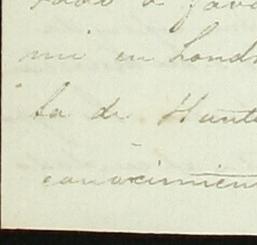 a favo
mi en Lond
ta de Hunt
conocimien